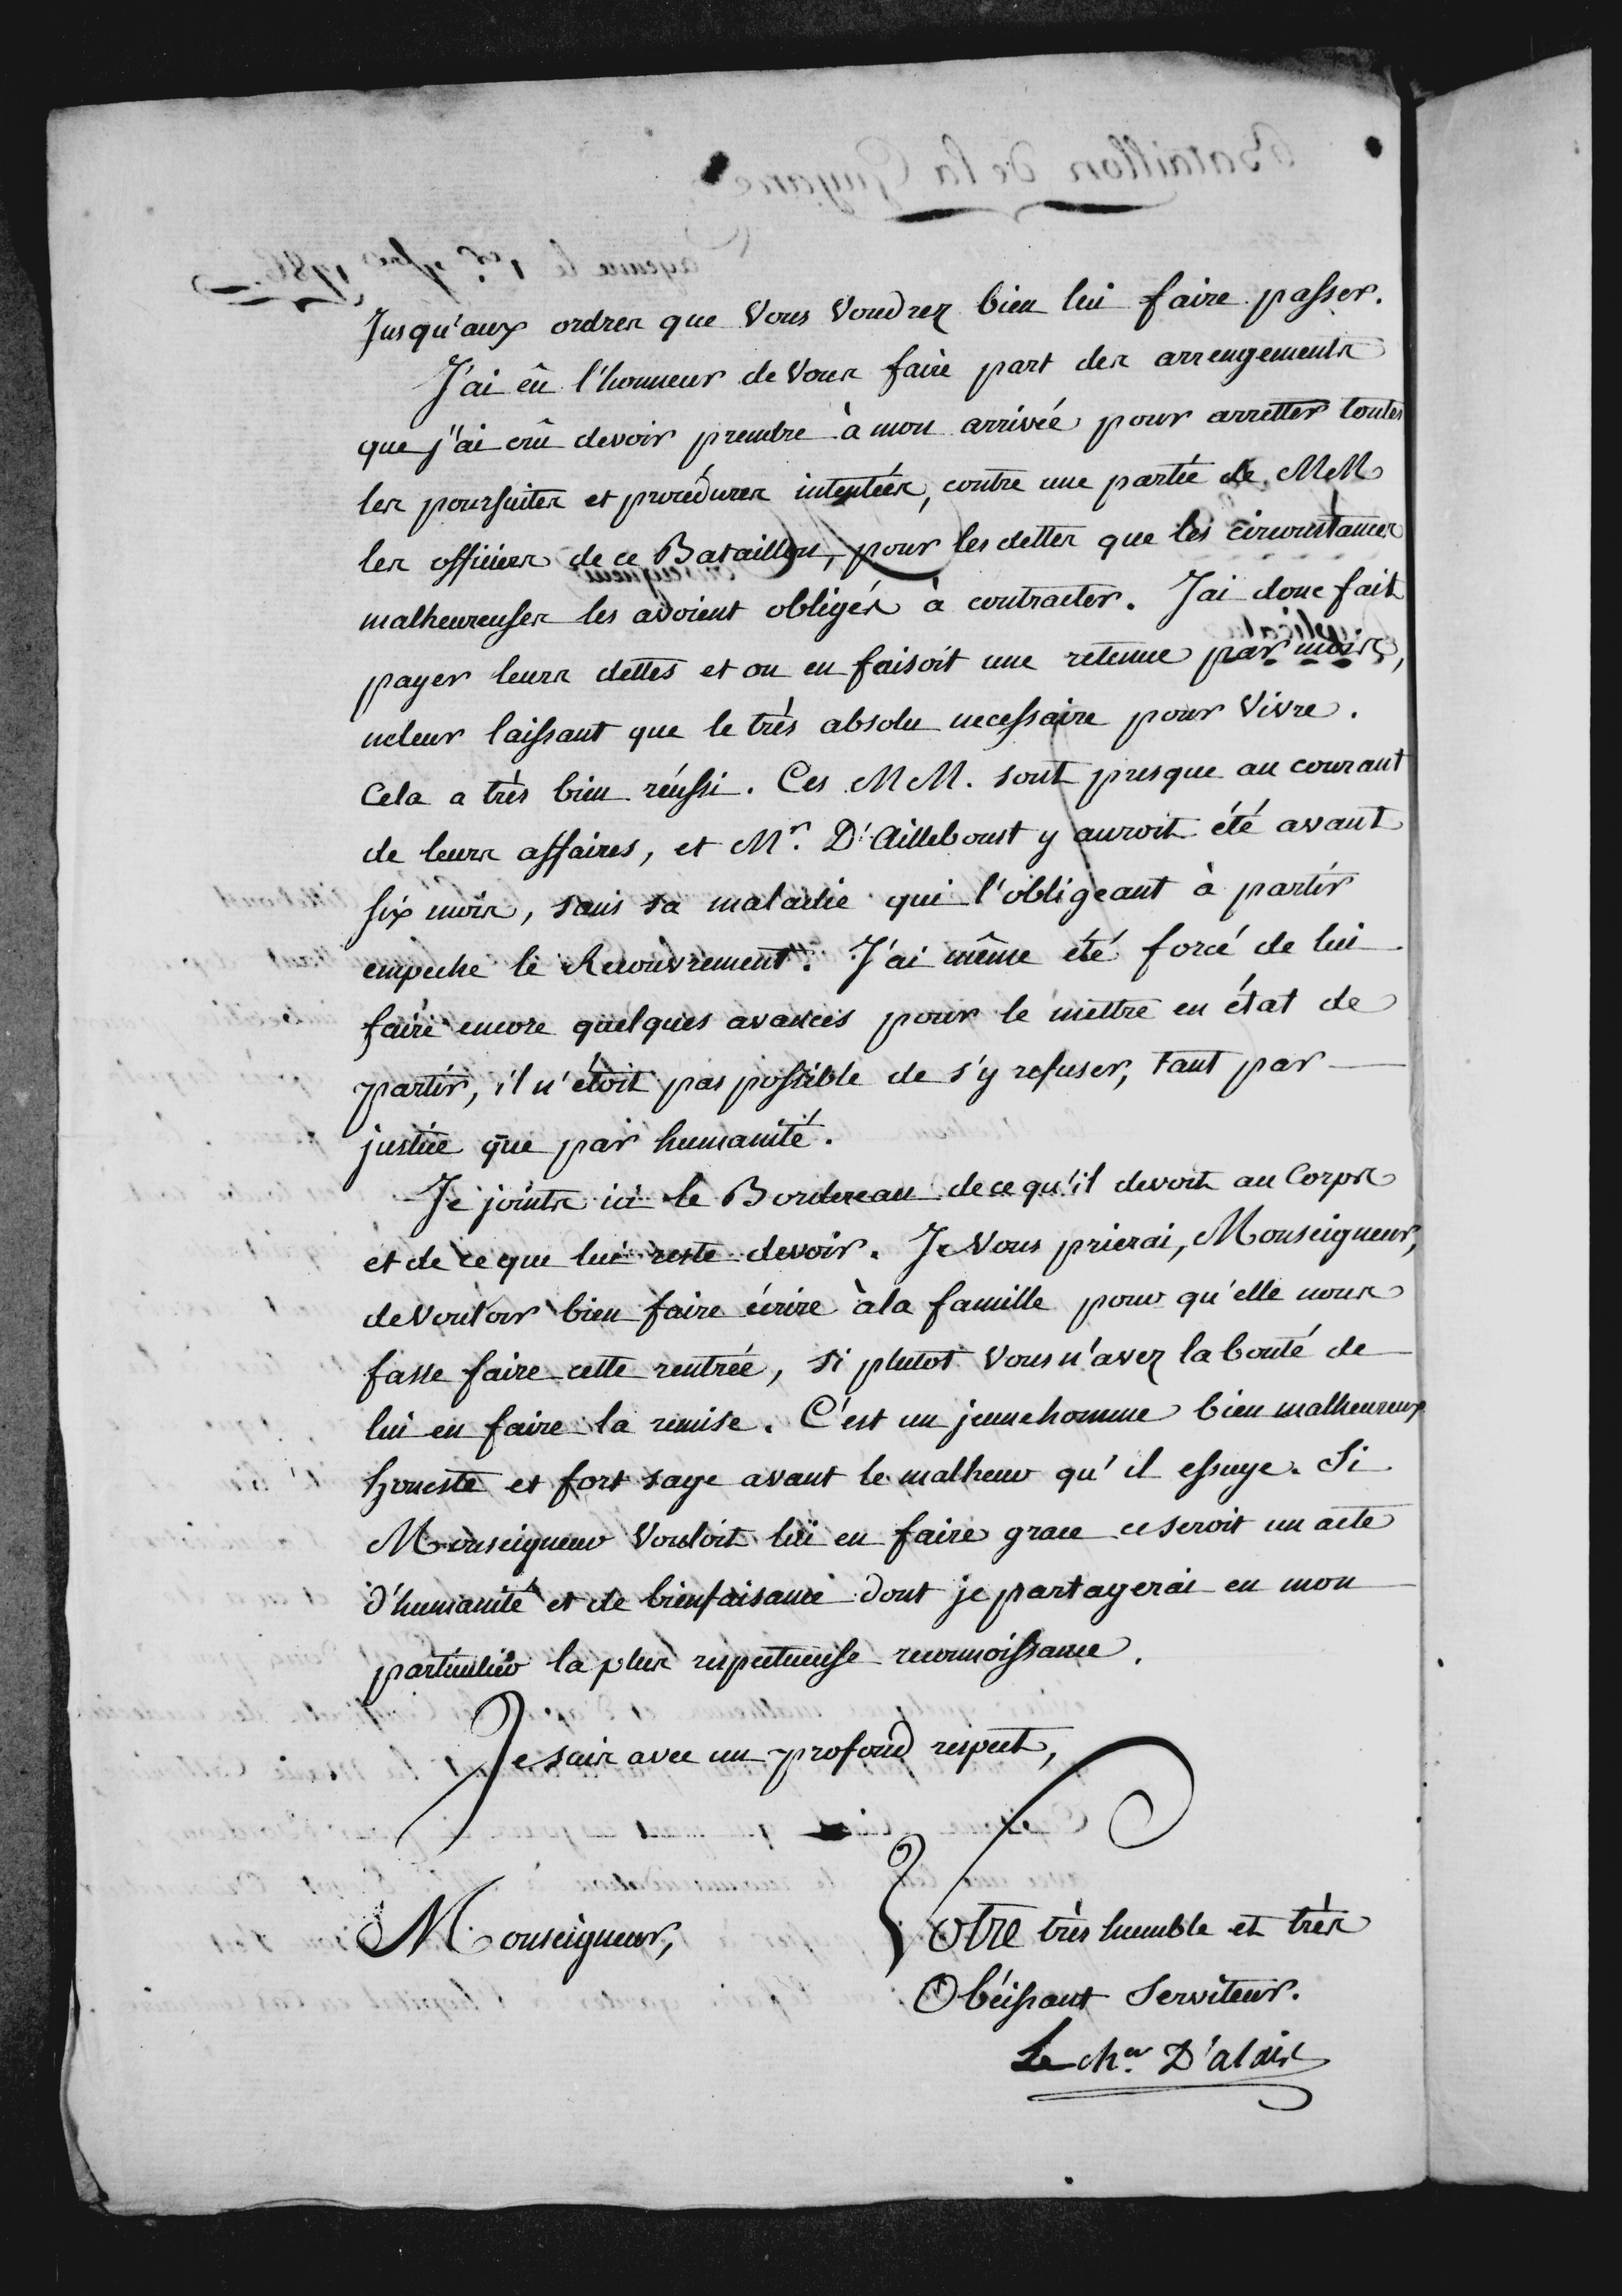 Jusqu'aux ordres que Vous Voudrez bien lui faire passer.
J'ai eû l'honneur de Vous faire part des arrengements
que j'ai crû devoir prendre à mon arrivée pour arretter toutes
les poursuites et procédures intentées, contre une partie de MM
les officiers de ce Bataillon, pour les dettes que les circonstances
malheureuses les avoient obligés à contracter. J'ai donc fait
payer leurs dettes et on en faisoit une retenue par mois,
ne leur laissant que le très absolu necessaire pour Vivre.
Cela a très bien réussi. Ces MM. sont presque au courant
de leurs affaires, et Mr. D'Ailleboust y auroit été avant
six mois, sans sa maladie qui l'obligeant à partir
empeche le Recouvrement. J'ai même été forcé de lui
faire encore quelques avances pour le mettre en état de
partir, il n'étoit pas possible de s'y refuser, tant par
justice que par humanité.
Je joints ici le Bordereau de ce qu'il devoit au Corps
et de ce que lui reste devoir. Je Vous prierai, Monseigneur,
de Vouloir bien faire écrire à la famille pour qu'elle nous
fasse faire cette rentrée, si plutot Vous n'avez la bonté de
lui en faire la remise. C'est un jeune homme bien malheureux
honeste et fort sage avant le malheur qu'il essuye. Si
Monseigneur Vouloit lui en faire grace ce seroit un acte
d'humanité et de bienfaisance dont je partagerai en mon
particulier la plus respectueuse reconnoissance.
Je suis avec un profond respect,
Monseigneur,
Votre très humble et très
Obéissant Serviteur.
Le cher. D'alais
Bataillon de la Guyane
Cayenne le 1er. 1786.
Monseigneur
Duplicata